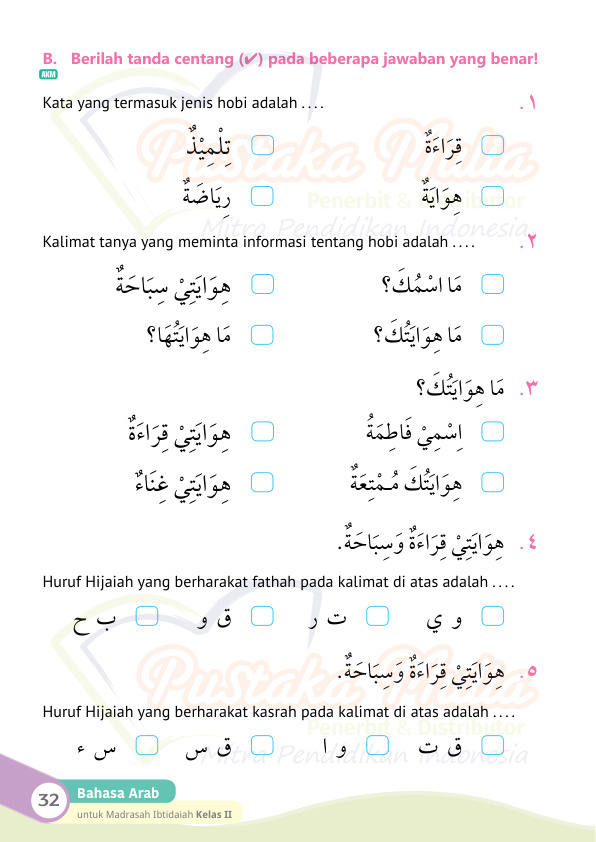 B. Berilah tanda centang (✔) pada beberapa jawaban yang benar!
AKM
Kata yang termasuk jenis hobi adalah . . . . ١.
قِرَاءَةٌ تِلْمِيْذٌ
هِوَايَةٌ رِيَاضَةٌ
Kalimat tanya yang meminta informasi tentang hobi adalah . . . . ٢.
مَا اسْمُكَ؟ هِوَايَتِيْ سِبَاحَةٌ
مَا هِوَايَتُكَ؟ مَا هِوَايَتُهَا؟
٣. مَا هِوَايَتُكَ؟
اِسْمِيْ فَاطِمَةُ هِوَايَتِيْ قِرَاءَةٌ
هِوَايَتُكَ مُمْتِعَةٌ هِوَايَتِيْ غِنَاءٌ
٤. هِوَايَتِيْ قِرَاءَةٌ وَسِبَاحَةٌ.
Huruf Hijaiah yang berharakat fathah pada kalimat di atas adalah . . . .
و ي ت ر ق و ب ح
٥. هِوَايَتِيْ قِرَاءَةٌ وَسِبَاحَةٌ.
Huruf Hijaiah yang berharakat kasrah pada kalimat di atas adalah . . . .
ق ت و ا ق س س ء
32 Bahasa Arab
untuk Madrasah Ibtidaiah Kelas II
Pustaka Mulia
Penerbit & Distributor
Mitra Pendidikan Indonesia
Pustaka Mulia
Penerbit & Distributor
Mitra Pendidikan Indonesia